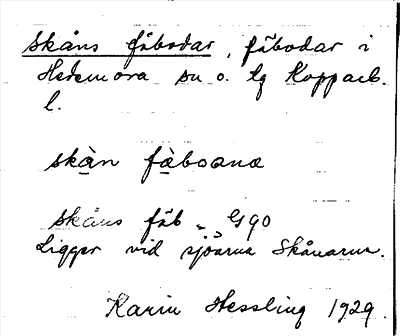 Skåns fäbodar, fäbodar i
Hedemora sn o. lg Kopparb.
l.
skàn fàboana
Skåns fäb G90
Ligger vid sjöarna Skånarna.
Karin Hessling 1929.